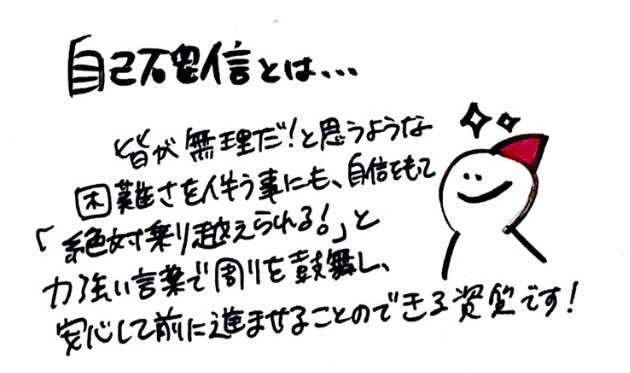 自己確信とは...
皆が無理だ!と思うような
困難さを伴う事にも、自信をもって
「絶対乗り越えられる!」と
力強い言葉で周りを鼓舞し、
安心して前に進ませることのできる資質です!